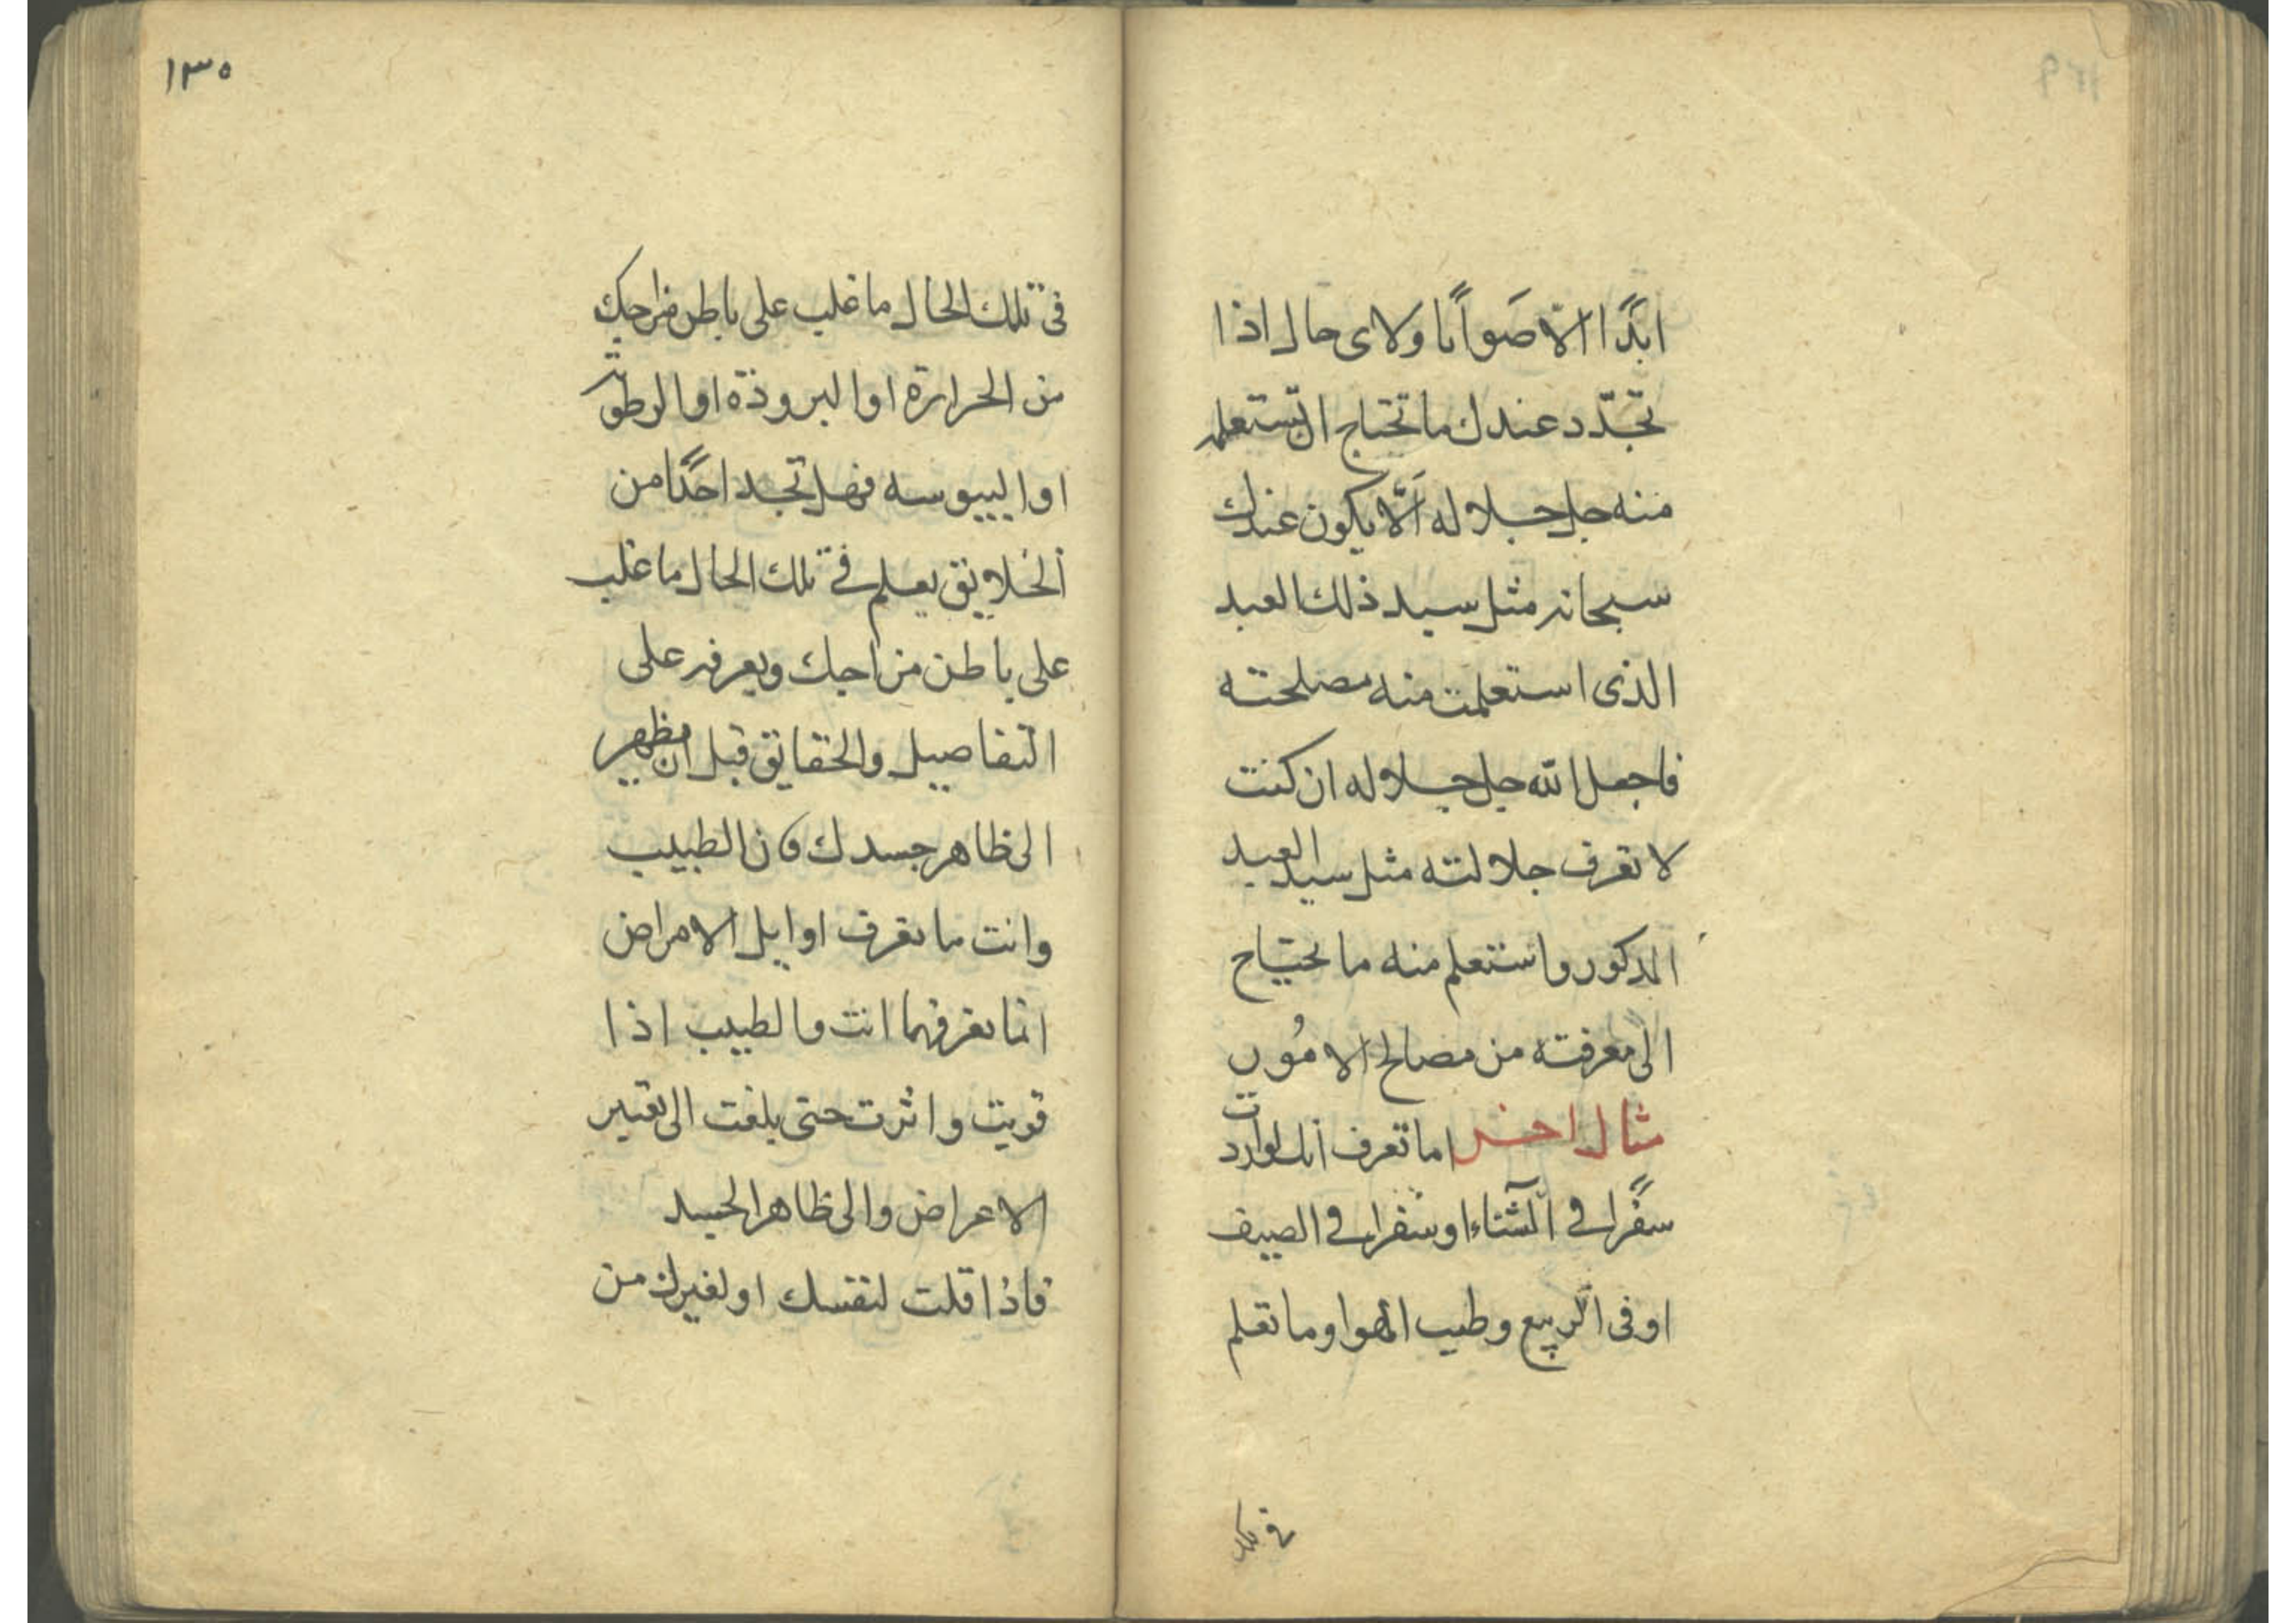 ابدًا الا صَوابًا ولاى حال اذا
تجدّد عندك ما تحتاج ان تستعلمه
منه جل جلاله الّا يكون عندك
سبحانه مثل سيد ذلك العبد
الذى استعلمت منه مصلحته
فاجعل الله جل جلاله ان كنت
لا تعرف جلالته مثل سيد العبد
المذكور واستعلم منه ما تحتاج
الى معرفته من مصالح الامُور
مثال اخر اما تعرف انك لو اردت
سفرًا فى الشتاء او سفرا فى الصيف
او فى الربيع وطيب الهوا وما تعلم
فى تلك
١٣٥
فى تلك الحال ما غلب على باطن مزاجك
من الحرارة او البرودة او الرطوبة
او اليبوسه فهل تجد احدًا من
الخلايق يعلم فى تلك الحال ما غلب
على باطن مزاجك ويعرفه على
التفاصيل والحقايق قبل ان يظهر
الى ظاهر جسدك فان الطبيب
وانت ما تعرف اوايل الامراض
انما تعرفهما انت والطبيب اذا
قويت واثرت حتى بلغت الى تغيير
الاعراض والى ظاهر الجسد
فاذا قلت لنفسك او لغيرك من